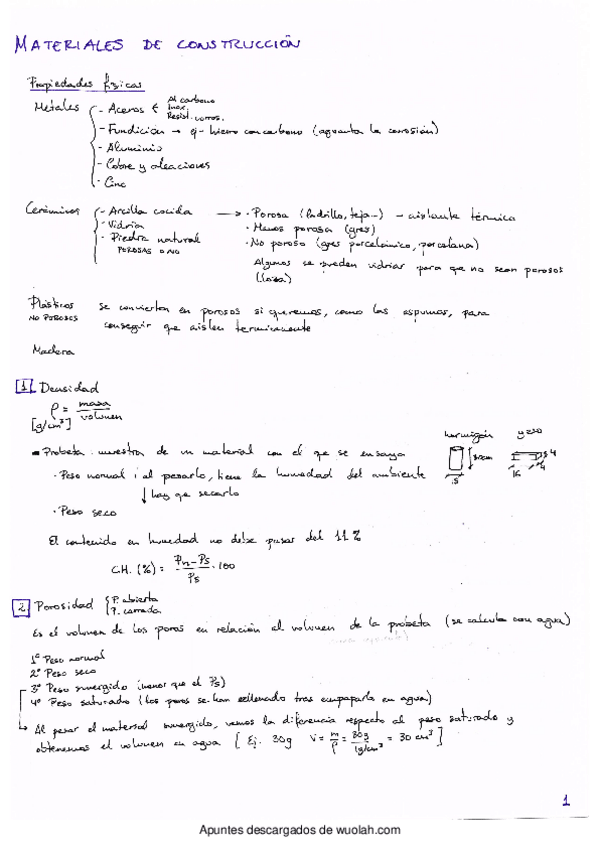 MATERIALES DE CONSTRUCCIÓN
Propiedades físicas
Metales - Aceros Al carbono
Inox.
Resist. corros.
- Fundición → ej- hierro con carbono (aguanta la corrosión)
- Aluminio
- Cobre y aleaciones
- Cinc
Cerámicos - Arcilla cocida → · Porosa (ladrillo, teja...) - aislante térmico
- Vidrio · Menos porosa (gres)
- Piedra natural · No poroso (gres porcelánico, porcelana)
POROSAS O NO Algunos se pueden vidriar para que no sean porosos
(loza)
Plásticos se convierten en porosos si queremos, como las espumas, para
NO POROSOS conseguir que aislen termicamente
Madera
1 Densidad
ρ = masa / volumen
[g/cm³]
Probeta: muestra de un material con el que se ensaya
hormigón yeso
30cm 4
15 16 4
· Peso normal: al pesarlo, tiene la humedad del ambiente
↓ hay que secarlo
· Peso seco
El contenido en humedad no debe pasar del 11%
C.H. (%) = Pn - Ps / Ps · 100
2 Porosidad P. abierta
P. cerrada
Es el volumen de los poros en relación al volumen de la probeta (se calcula con agua)
1º Peso normal
2º Peso seco
3º Peso sumergido (menor que el Ps)
4º Peso saturado (los poros se han rellenado tras empaparla en agua)
Al pesar el material sumergido, vemos la diferencia respecto al peso saturado y
obtenemos el volumen en agua [Ej. 30g V = m/ρ = 30g / 1g/cm³ = 30 cm³]
1
Apuntes descargados de wuolah.com